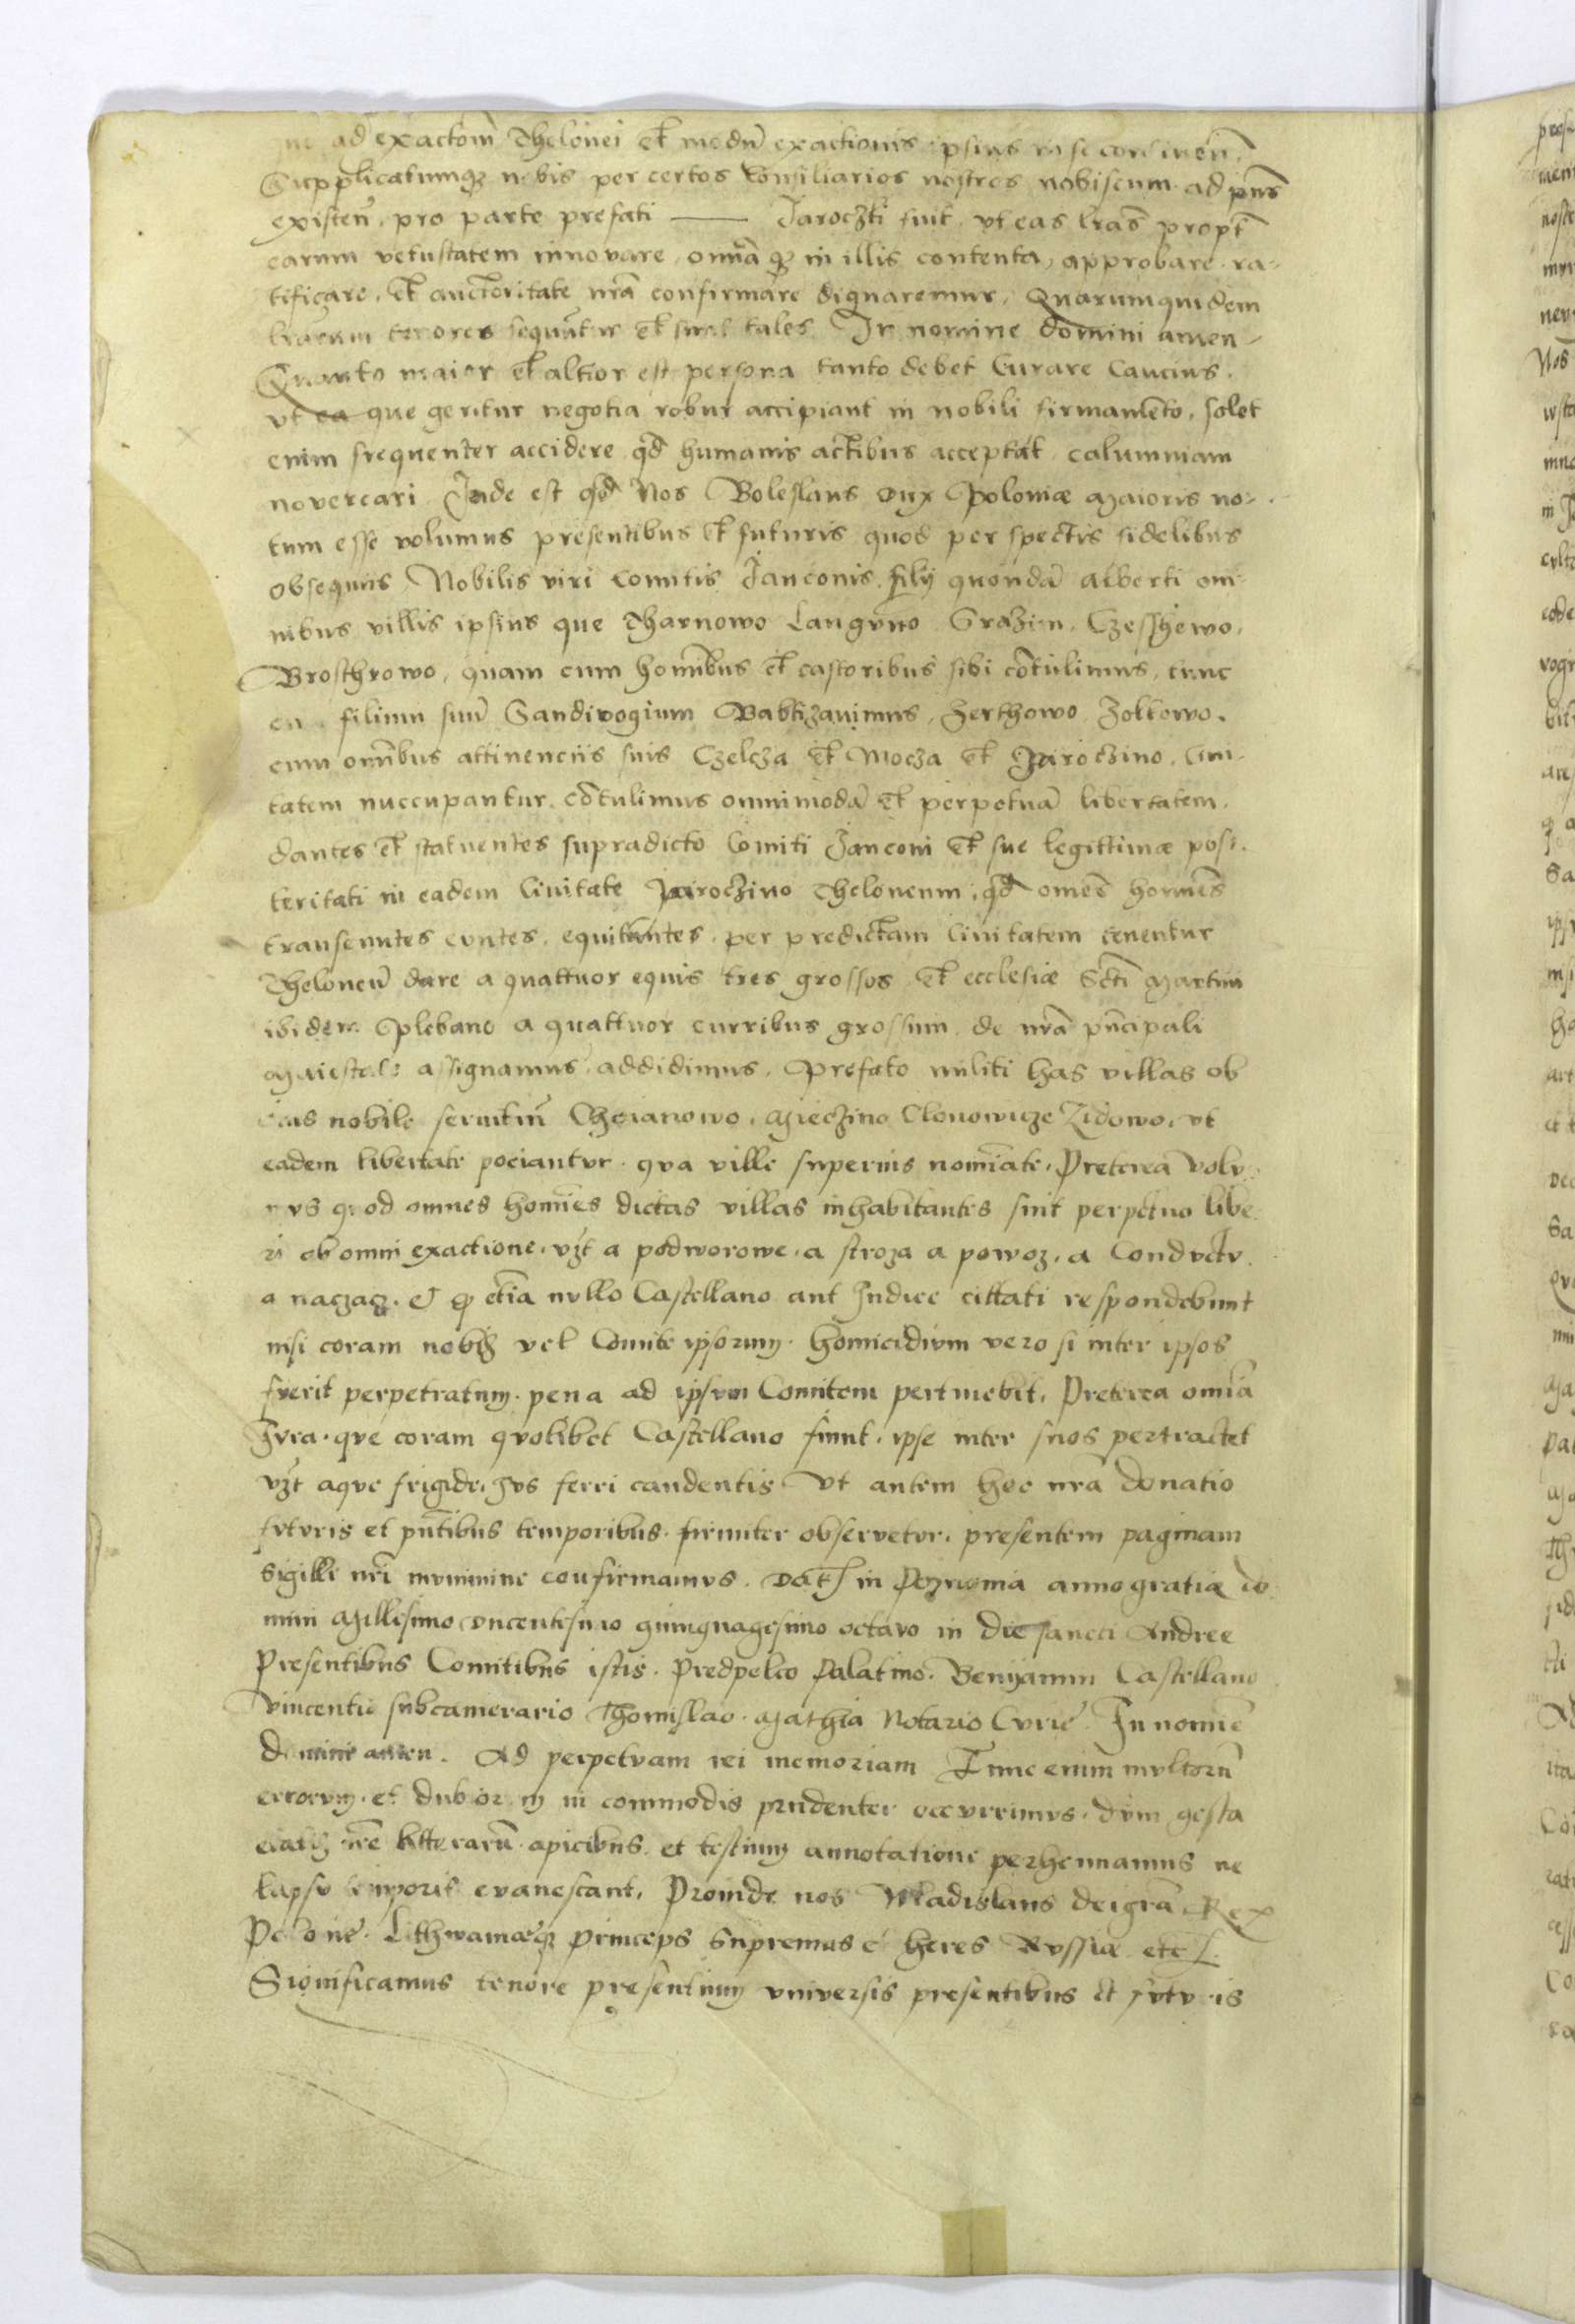 ad exactom̄ Thelonei et̄ modū exactionis ipsius in se continen̄.
Supplicatumqȝ nobis per certos Consiliarios nostros nobiscum ad p̄ns
existen̄. pro parte prefati —— Jaroczki fuit, vt eas lrās propt̄
earum vetustatem innovare, omīa qȝ in illis contenta, approbare. ra-
tificare. et̄ auctoritate nrā confirmare dignaremur. Quarumquidem
lrārum tenores sequūtur et̄ sunt tales. In nomine domini amen.
Quanto maior et̄ altior est persona tanto debet Curare Caucius.
vt ea que geritur negotia robur accipiant in nobili firmamēto. solet
enim frequenter accidere qd̄ humanis actibus acceptat calumniam
novercari Inde est qd̄ Nos Boleslaus Dux Poloniæ Maioris no-
tum esse volumus presentibus et̄ futuris quod perspectis fidelibus
obsequiis Nobilis viri Comitis Janconis filij quondā alberti om-
nibus villis ipsius que Tharnowo Langvno Grazim, Czesszewo,
Brosthrowo, quam cum homībus et̄ castoribus sibi cōtulimus, tunc
filium suū Sandivogium Babtizauimus, Zerthowo Zolkowo.
cum omībus attinenciis suis Czelcza et̄ Mocza et̄ Jaroczino, Ciui-
tatem nuccupantur. cōtulimus omnimodā et̄ perpetuā libertatem.
dantes et̄ statuentes supradicto Comiti Janconi et̄ sue legittimæ pos-
teritati in eadem Ciuitate Jaroczino Theloneum, qd̄ omēs homēs
transeuntes evntes, equitantes, per predictam Ciuitatem tenentur
Theloneū dare a quattuor equis tres grossos, et̄ ecclesiæ Scti Martini
ibidem Plebano a quattuor curribus grossum, de nrā pn̄cipali
Maiestate assignamus, addidimus, Prefato militi has villas ob
eius nobile seruitiū Choianowo, Mieczino Clonowicze Zidowo, vt
eadem libertate pociantvr. qva ville superius nomīate, Preterea volv-
mvs quod omnes homīes dictas villas inhabitantes sint perpetuo libe
ri ab omni exactione, vȝt a podworowe, a stroza a powoz, a Condvctv
a naczacz. et qȝ etīa nvllo Castellano aut Judice cittati respondebunt
nisi coram nobiȝ vel Comite ipsorum. homicidivm vero si inter ipsos
fverit perpetratum. pena ad ipsvm Comitem pertinebit. Preterea omīa
Jvra. qve coram qvolibet Castellano fiunt. ipse inter suos pertractet
vȝt aqve frigide, Jvs ferri candentis Vt autem hec nrā donatio
fvtvris et pn̄tibus temporibus. firmiter observetvr. presentem paginam
Sigilli nrī mvnimine confirmamvs. Dat in Poznonia anno gratiæ do
mini Millesimo dvcentesimo quinquagesimo octavo in die sancti Andree
Presentibvs Comitibvs istis. Predpelco Palatino. Beniyamin Castellano
Vincentio subcamerario Thomislao. Mathia Notario Cvrie. In nomīe
domini amen. Ad perpetvam rei memoriam Tunc enim mvltorū
errorvm. et dubiorum in commodis prudenter occvrrimvs. dvm gesta
etatis nrē litterarū apicibvs. et testium annotatione perhennamus ne
lapsv temporis evanescant. Proinde nos Wladislaus dei grā Rex
Polonie. Lithwaniæqȝ princeps Supremus et heres Rvssiæ etc
Significamus tenore presentium vniversis presentibus et fvtvris